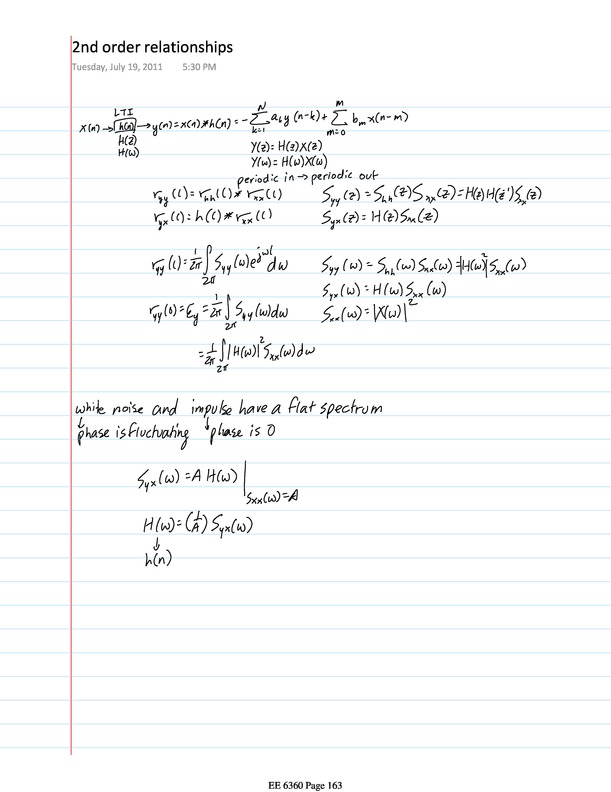 2nd order relationships
Tuesday, July 19, 2011 5:30 PM
LTI
x(n) → h(n) → y(n) = x(n) * h(n) = - Σ_{k=1}^{N} a_k y(n-k) + Σ_{m=0}^{m} b_m x(n-m)
H(z) Y(z) = H(z) X(z)
H(ω) Y(ω) = H(ω) X(ω)
periodic in → periodic out
r_yy(l) = r_hh(l) * r_xx(l) S_yy(z) = S_hh(z) S_xx(z) = H(z) H(z⁻¹) S_xx(z)
r_yx(l) = h(l) * r_xx(l) S_yx(z) = H(z) S_xx(z)
r_yy(l) = 1/2π ∫_{2π} S_yy(ω) e^{jωl} dω S_yy(ω) = S_hh(ω) S_xx(ω) = |H(ω)|² S_xx(ω)
S_yx(ω) = H(ω) S_xx(ω)
r_yy(0) = E_y = 1/2π ∫_{2π} S_yy(ω) dω S_xx(ω) = |X(ω)|²
= 1/2π ∫_{2π} |H(ω)|² S_xx(ω) dω
white noise and impulse have a flat spectrum
↓ ↓
phase is fluctuating phase is 0
S_yx(ω) = A H(ω) |_{S_xx(ω) = A}
H(ω) = (1/A) S_yx(ω)
↓
h(n)
EE 6360 Page 163